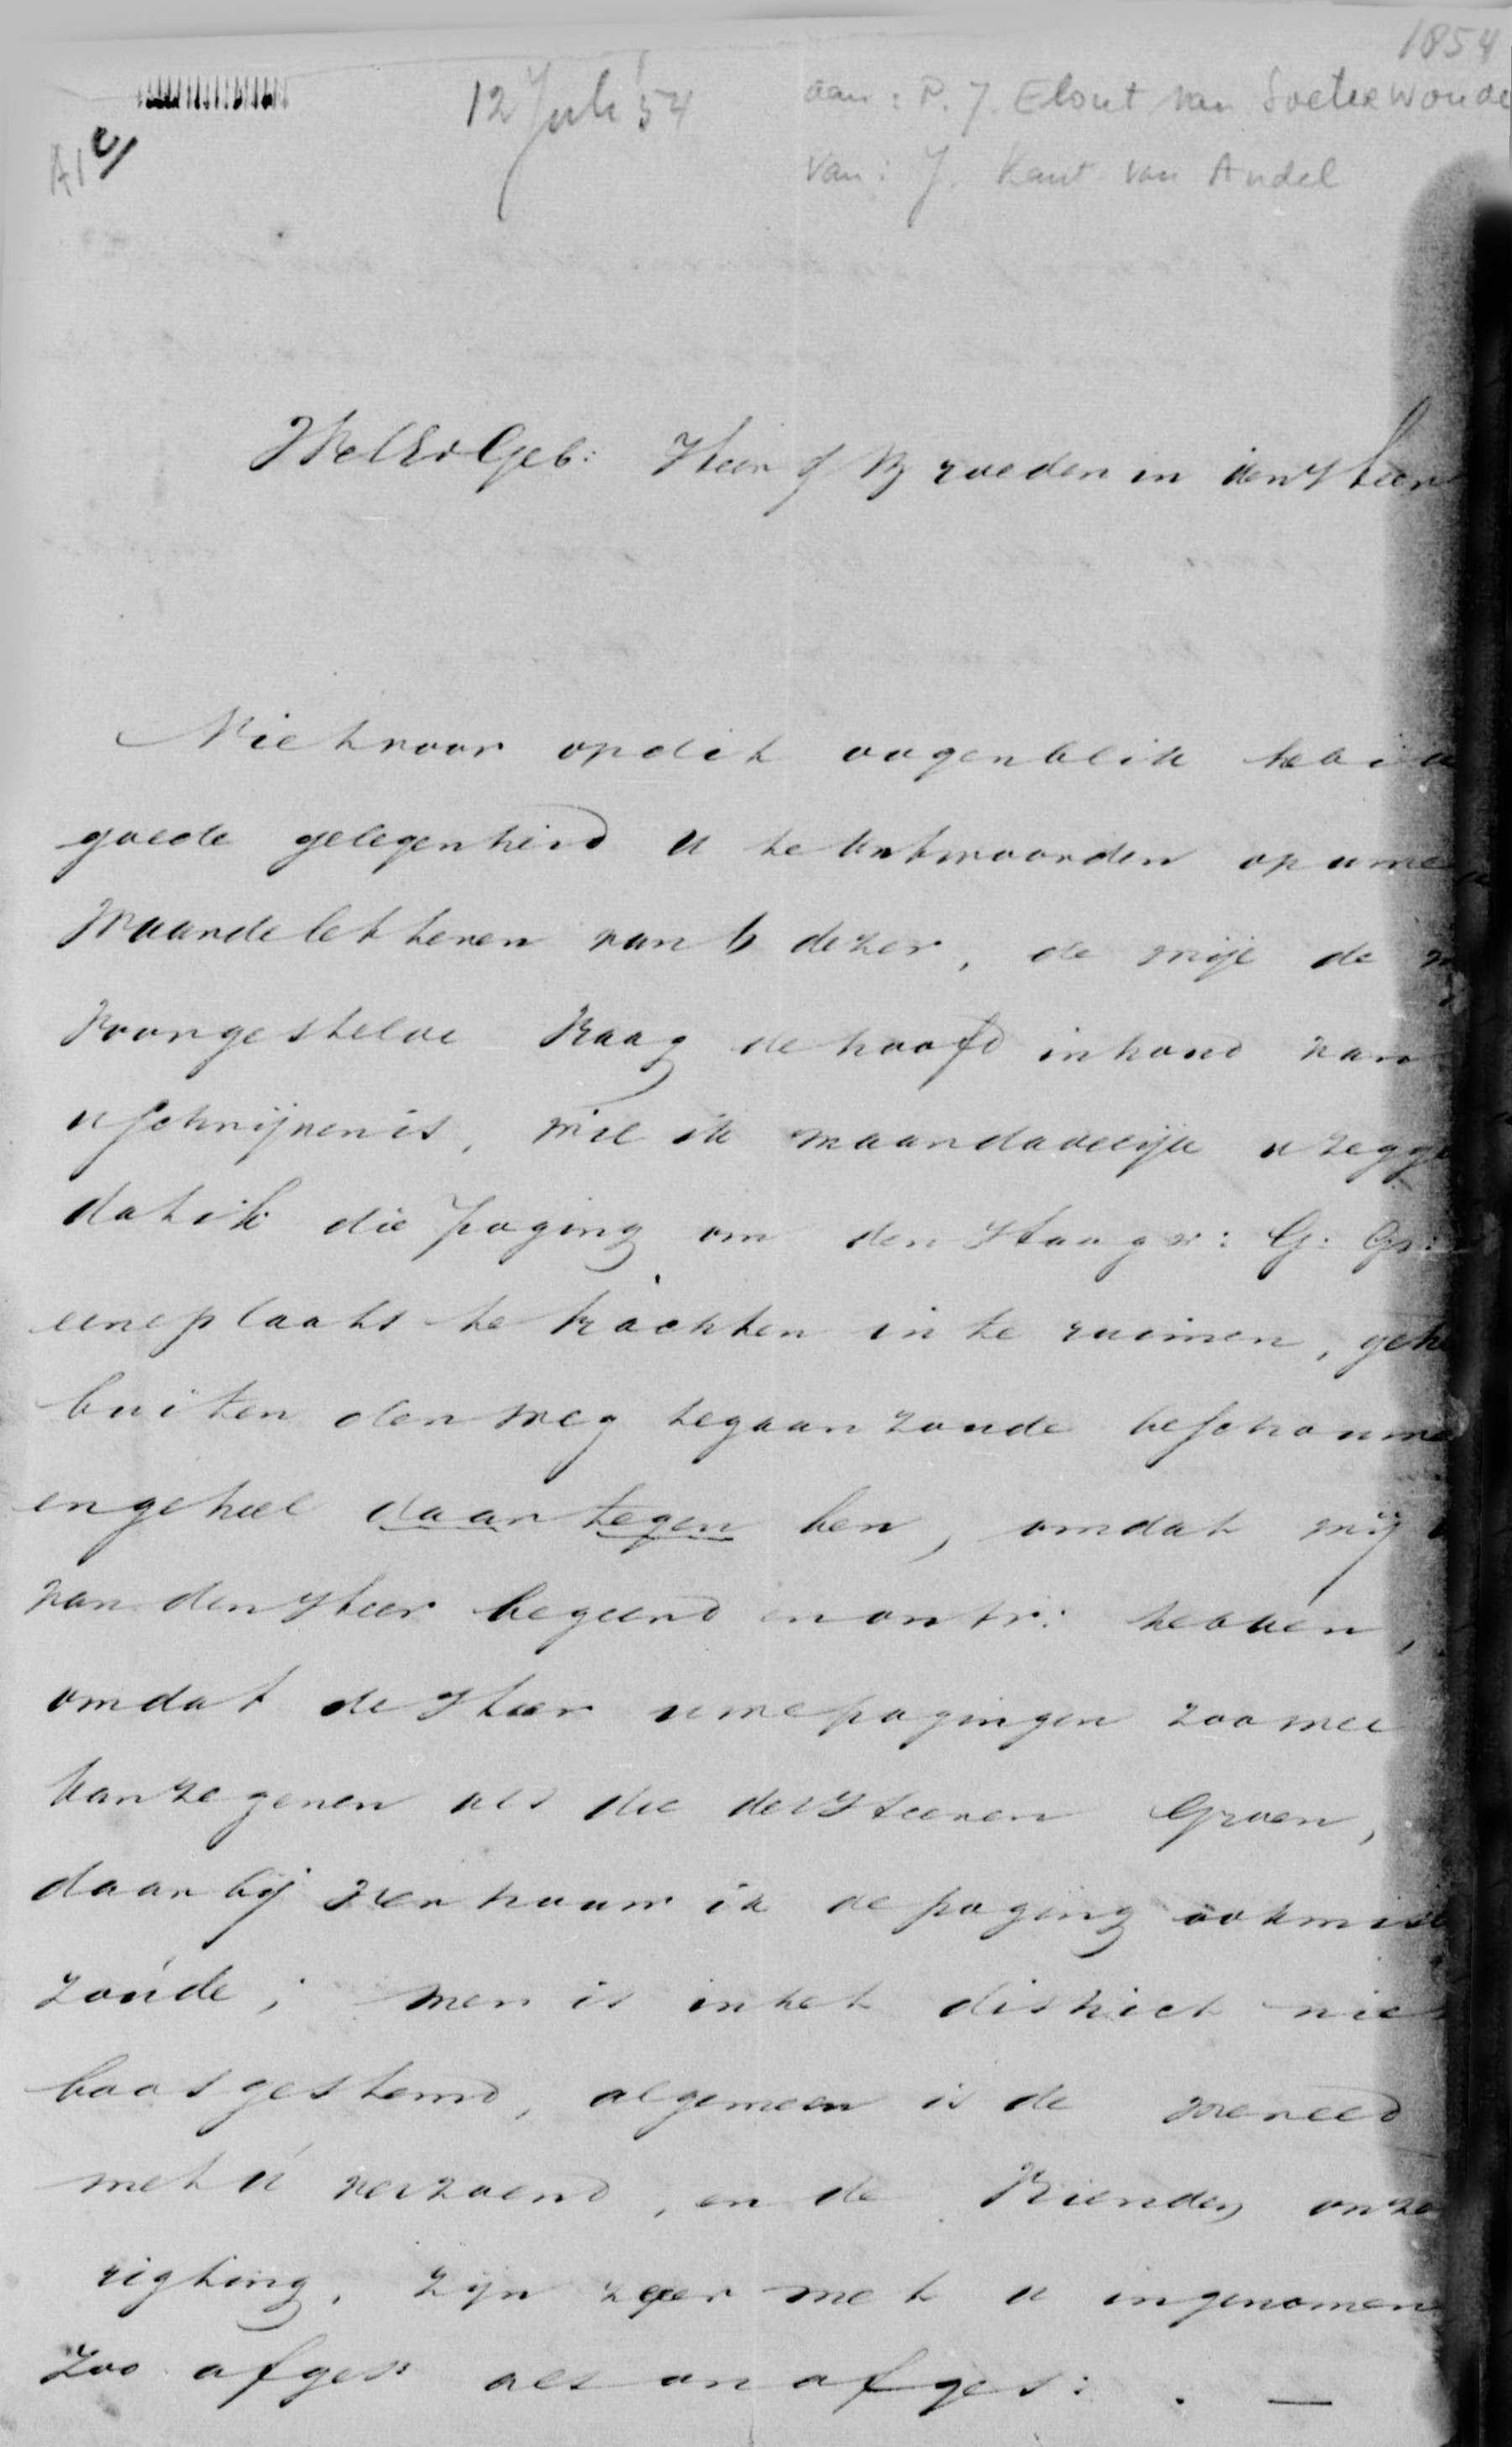 1854
12 Juli '54
aan: P. J. Elout van Soeterwoude
van: J. Kant van Andel
A1c/
WelEd Geb: Heer & Broeder in den Heer
Niet voor op dit oogenblik heb ik
goede gelegenheid U te antwoorden op uwe
Waarde letteren van 6 dezer, de wijl de
Voorgestelde Vraag de hoofd inhoud van
u schrijven is, wil ik maar dadelijk u zegge
dat ik die poging om den Hoog W: G: Gr:
eene plaats te trachten in te ruimen, gehe
buiten den weg te gaan zoude beschouwe
en geheel daar tegen ben, omdat wij u
van den Heer begeerd en ontv: hebben,
omdat de Heer uwe pogingen zoo wel
kan zegenen als die des Heeren Groen,
daar bij vertrouw ik de poging ook mis
zoude; men is in het district niet
boos gestemd, algemeen is de wereld
met u verzoend, en de Vrienden onze
rigting, zijn zeer met u ingenomen
zoo afges: als onafges: . —